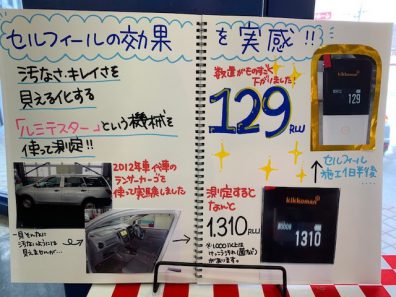 セルフィールの効果
を実感!!
汚なさ・キレイさを
見える化する
「ルミテスター」という機械を
使って測定!!
2012年車 代車の
ランサーカーゴを
使って実験しました
一見そんなに
汚ないようには
見えませんが…
数値がものすごく
下がりました!
129 RLU
kikkoman
129
セルフィール
施工1日半後
測定すると
なんと
1,310 RLU
※1,000以上は
けっこう汚れ(菌など)
があります。
kikkoman
1310